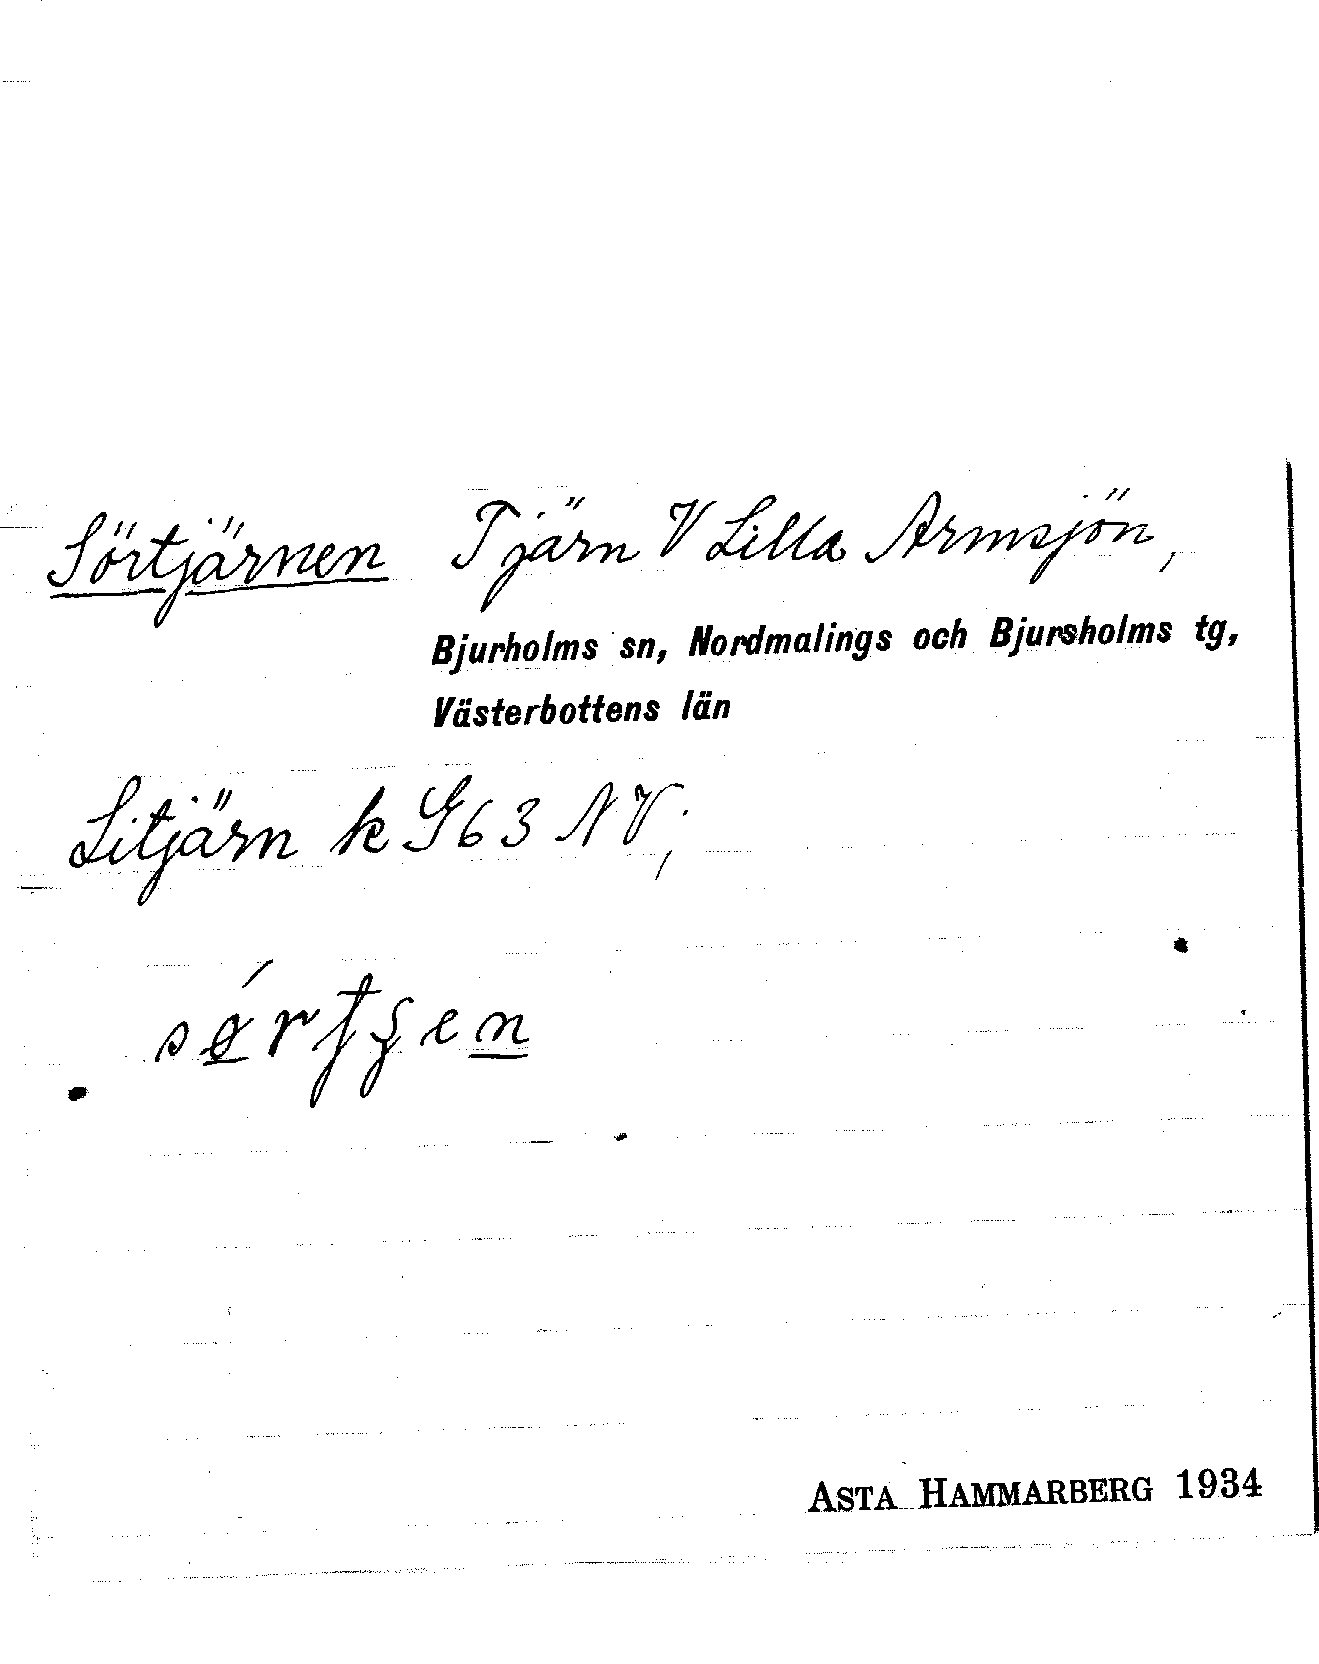 Sörtjärnen Tjärn V Lilla Armsjön,
Bjurholms sn, Nordmalings och Bjursholms tg,
Västerbottens län
Litjärn k G63 NV;
ASTA HAMMARBERG 1934